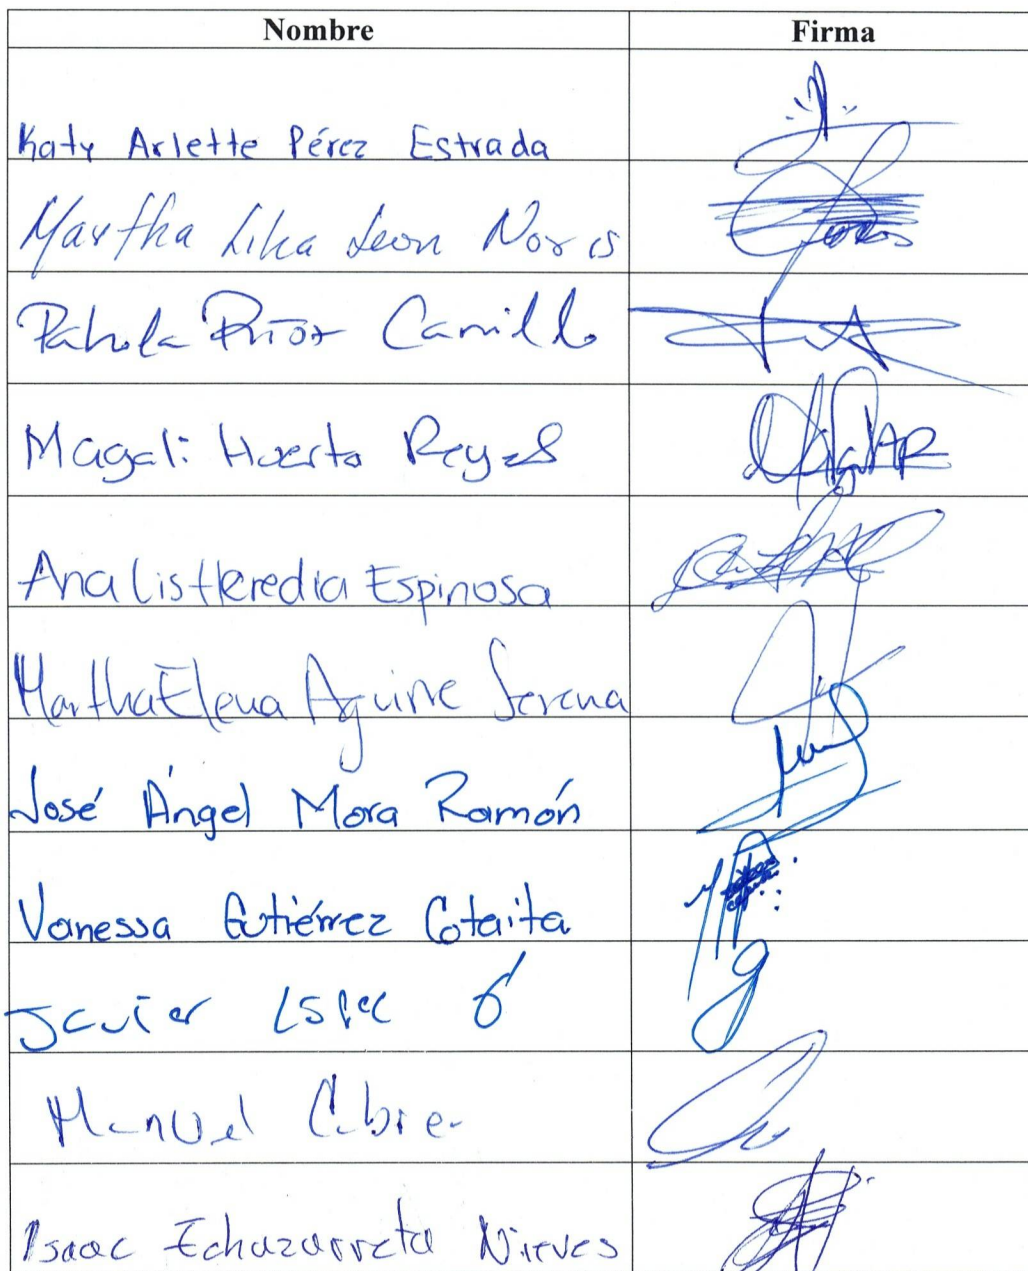 Nombre Firma
Katy Arlette Pérez Estrada
Martha Lilia Leon Noris
Pahola Ríos Carrillo
Magali Huerta Reyes
Ana Lis Heredia Espinosa
Martha Elena Aguirre Serena
José Ángel Mora Ramón
Vanessa Gutiérrez Cotaita
Javier
Manuel Cabrer
Isaac Echazarreta Nieves